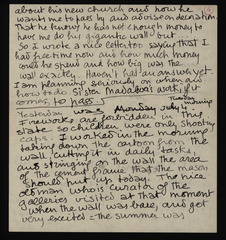 about his new church and how he
wants me to pass by and advise on decoration.
That he knows he has not enough money to
have me do his gigantic wall, but
So I wrote a nice letter too saying that I
had free time now and how much money
could he spend and how big was the
wall exactly. Haven't had an answer yet.
I am planning seriously on when and
how to do Sister Magdalen's work, if it
comes to pass.
Tuesday morning
Yesterday was Monday July 4
Fireworks are forbidden in this
state so children where only shooting
caps. I worked in the morning
taking down the cartoon from the
wall, cutting it in daily tasks
and stringing on the wall the area
of the cement frame that the mason
should put up today. The nice
old man who is curator of the
galleries visited at that moment
when the wall was bare, and got
very excited = the summer was